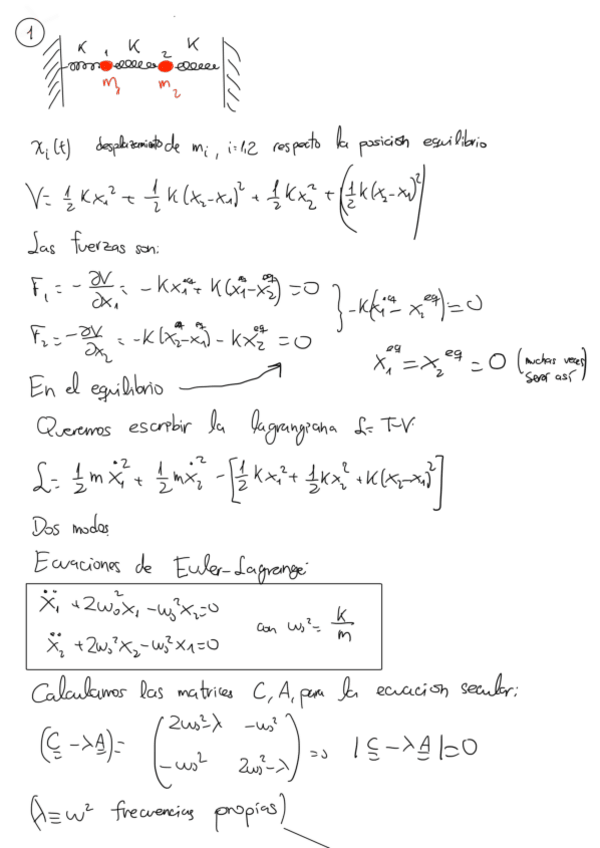 1
K 1 K 2 K
m₁ m₂
xᵢ(t) desplazamiento de mᵢ, i=1,2 respecto la posición equilibrio
V = ½ K x₁² + ½ K (x₂-x₁)² + ½ K x₂² + (½ K (x₂-x₁)²)
Las fuerzas son:
F₁ = -∂V/∂x₁ = -K x₁^eq + K(x₁^eq - x₂^eq) = 0
F₂ = -∂V/∂x₂ = -K(x₂^eq - x₁^eq) - K x₂^eq = 0
} -K(x₁^eq - x₂^eq) = 0
x₁^eq = x₂^eq = 0 (muchas veces será así)
En el equilibrio
Queremos escribir la lagrangiana L = T-V.
L = ½ m ẋ₁² + ½ m ẋ₂² - [½ K x₁² + ½ K x₂² + K(x₂-x₁)²]
Dos modos
Ecuaciones de Euler-Lagrange:
ẍ₁ + 2ω₀² x₁ - ω₀² x₂ = 0
ẍ₂ + 2ω₀² x₂ - ω₀² x₁ = 0
con ω₀² = K/m
Calculamos las matrices C, A, para la ecuación secular:
(C - λA) = (2ω₀²-λ -ω₀²
-ω₀² 2ω₀²-λ) => |C - λA| = 0
(λ ≡ ω² frecuencias propias)